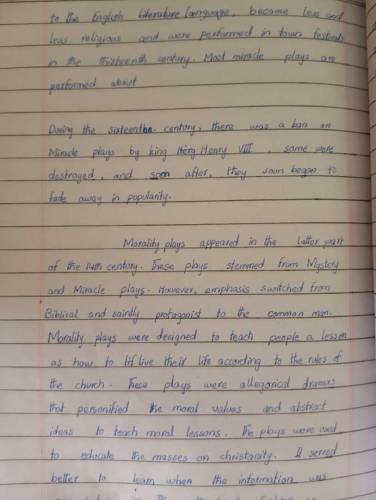 to the English Literature Language, became less and
less religious and were performed in town festivals
in the thirteenth century. Most miracle plays are
performed about
During the sixteenth century, there was a ban on
Miracle plays by king Henry VIII, some were
destroyed, and soon after, they soun began to
fade away in popularity.
Morality plays appeared in the latter part
of the 14th century. These plays stemmed from Mystery
and Miracle plays. However, emphasis switched from
Biblical and saintly protagonist to the common man.
Morality plays were designed to teach people a lesson
as how to lif live their life according to the rules of
the church. These plays were allegorical dramas
that personified the moral values and abstract
ideas to teach moral lessons. The plays were used
to educate the masses on christianity. It served
better to learn when the information was